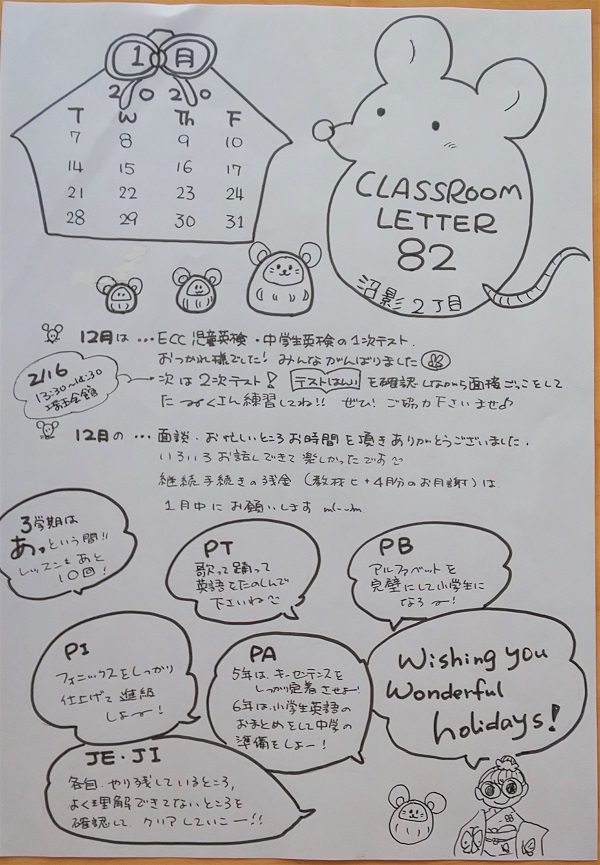 1月
2020
T W Th F
7 8 9 10
14 15 16 17
21 22 23 24
28 29 30 31
CLASSROOM
LETTER
82
沼影2丁目
12月は…ECC児童英検・中学生英検の1次テスト.
おつかれ様でした! みんながんばりました
2/16
13:30~14:30
埼玉会館
次は2次テスト! テストはんいを確認しながら面接ごっこをして
たくさん練習してね!! ぜひ!ご協力下さいませ♪
12月の…面談.お忙しいところお時間を頂きありがとうございました.
いろいろお話しできて楽しかったです
継続手続きの残金(教材ヒ+4月分のお月謝)は
1月中にお願いします m(--)m
3学期は
あっという間!!
レッスンもあと
10回!
PT
歌って踊って
英語をたのしんで
下さいね
PB
アルファベットを
完璧にして小学生に
なろー!
PI
フォニックスをしっかり
仕上げて進級
しよー!
PA
5年は、キーセンテンスを
しっかり定着させよー!
6年は、小学生英語の
おまとめをして中学の
準備をしよー!
Wishing you
Wonderful
holidays!
JE・JI
各自.やり残しているところ,
よく理解できてないところを
確認して クリアしていこー!!